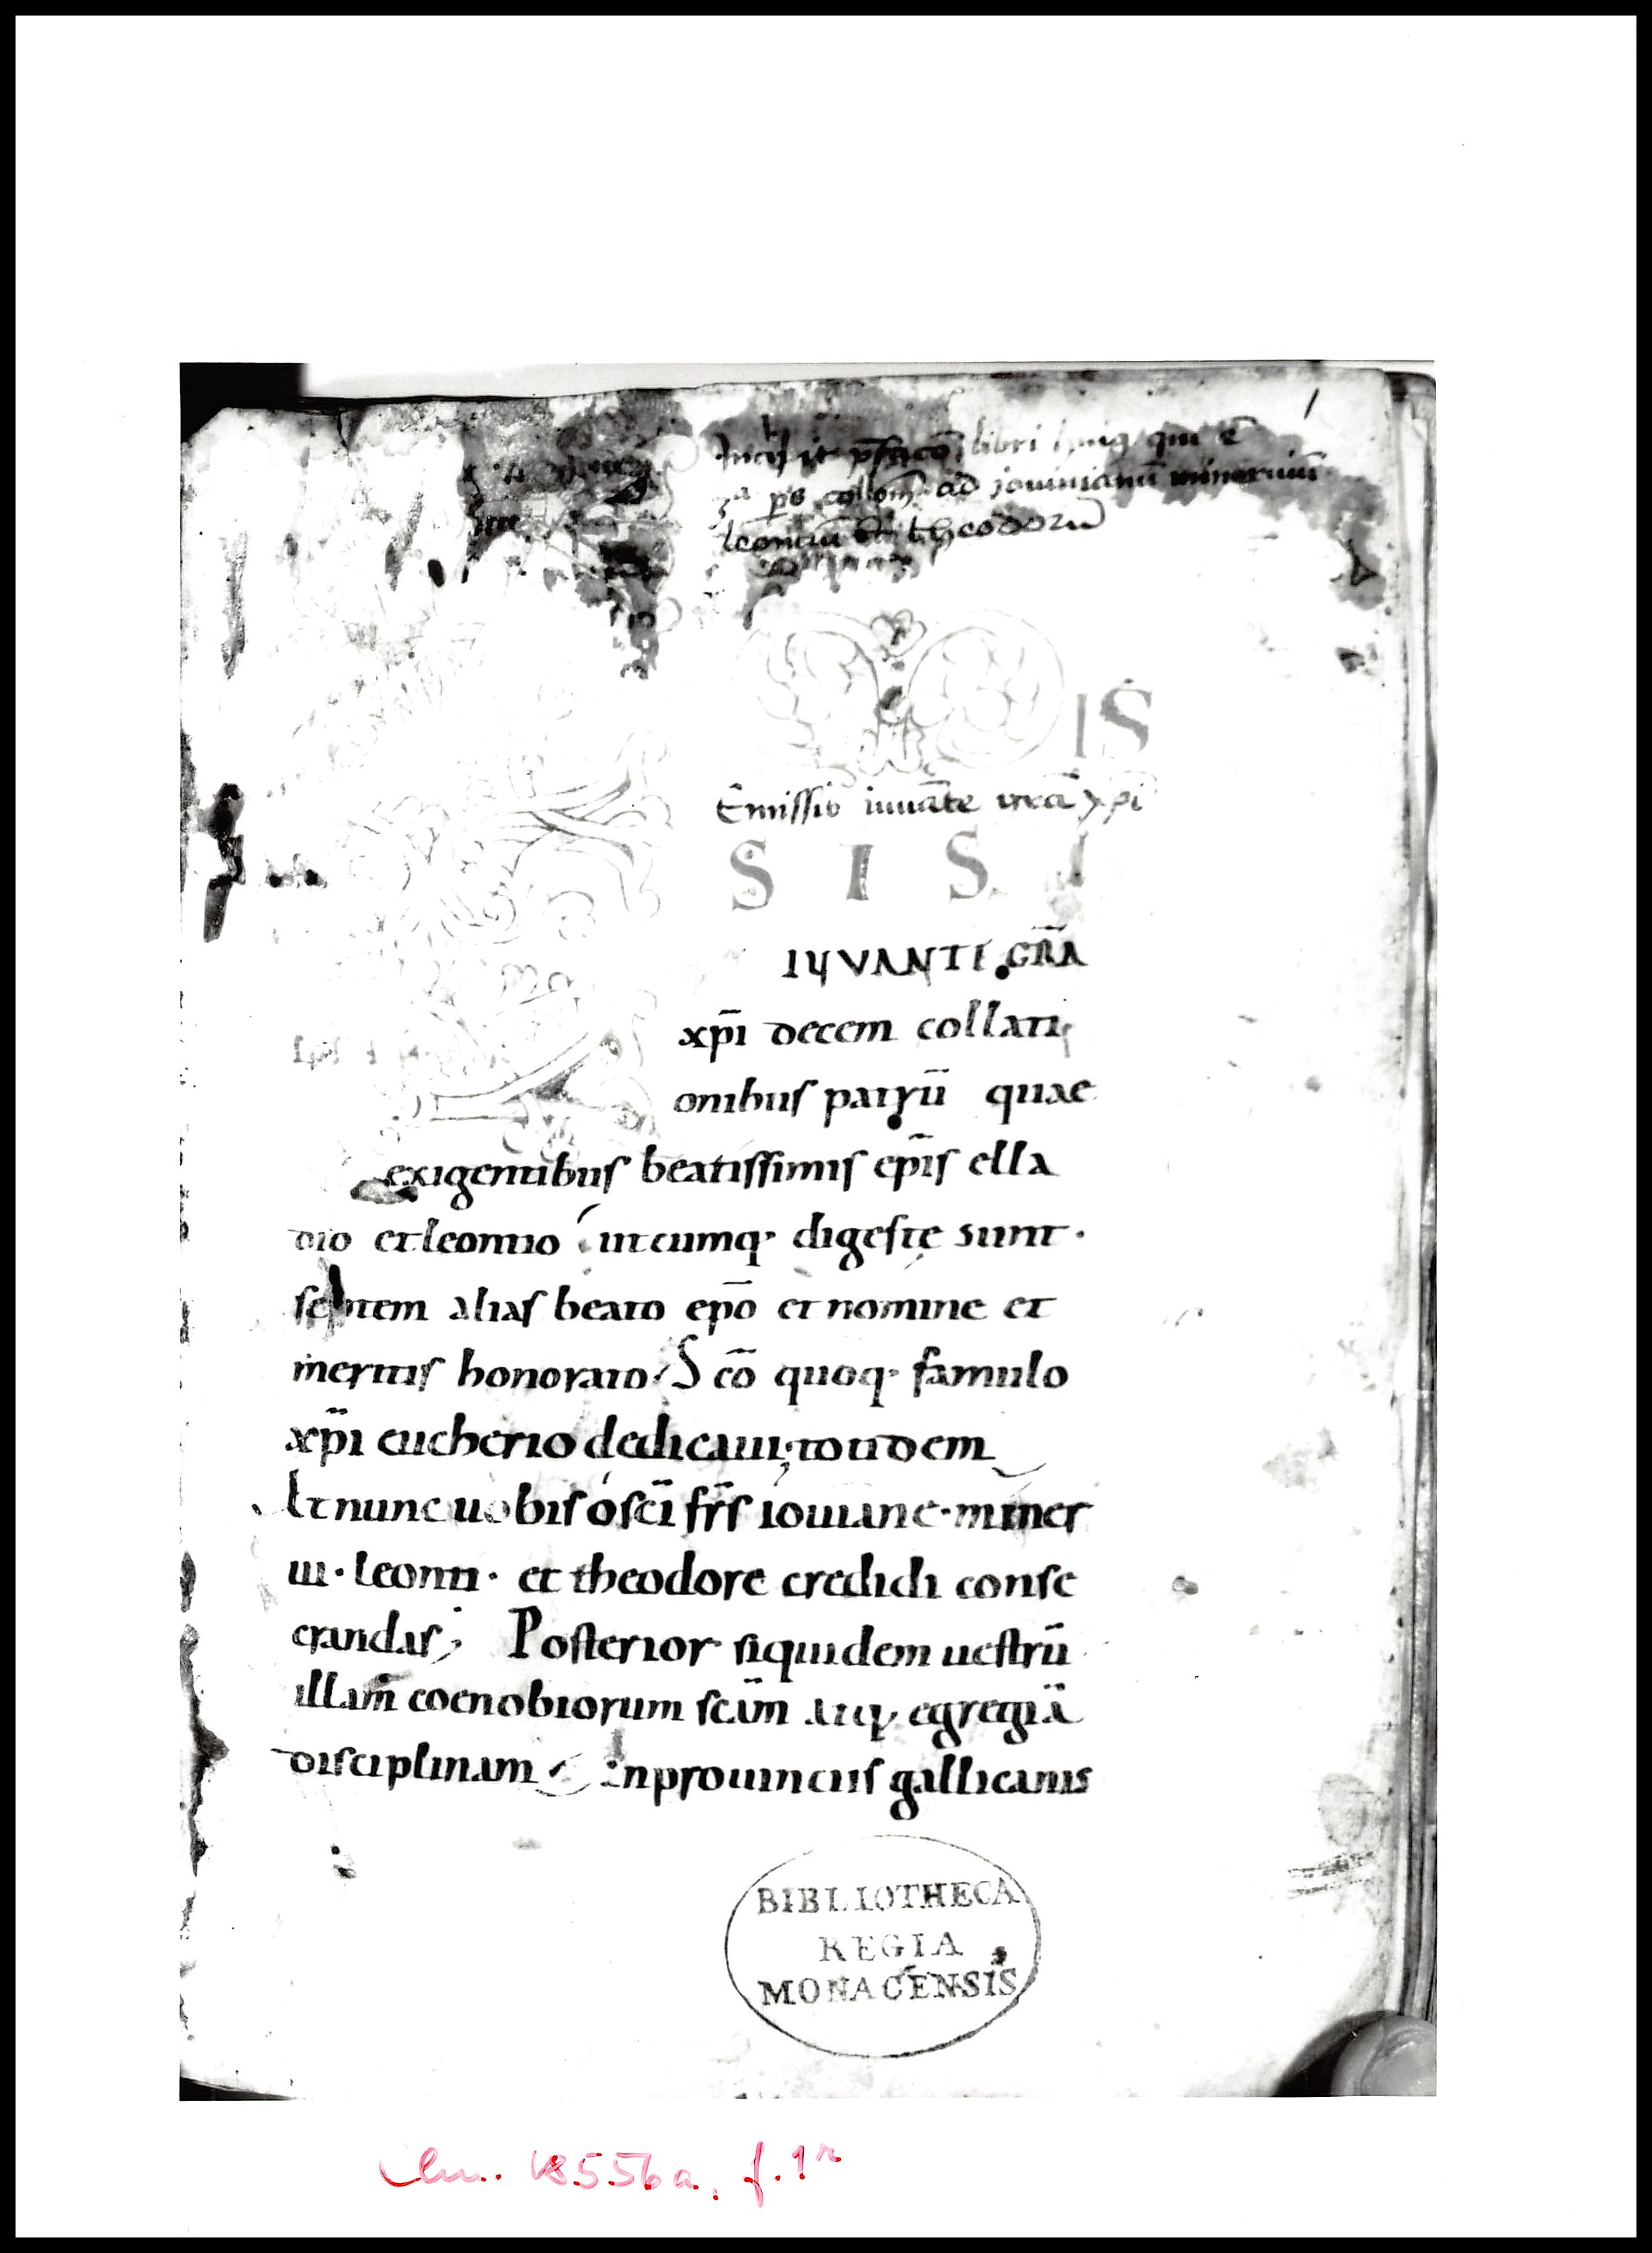 1
Incipit p̄facō libri huiꝯ qui ē
3ᵃ ps collom̄ ad iouinianū mineruiū
leonciū et theodorū
IS
Emissis iuuāte gr̄a xp̄i
S I S
IUVANTE GR̄A
xp̄i decem collati
onibus patrū quae
exigentibus beatissimis ep̄is ella
dio et leontio utcumq· digeste sunt·
septem alias beato ep̄o et nomine et
meritis honorato Sc̄o quoq· famulo
xp̄i eucherio dedicaui; totidem
Et nunc uobis o sc̄i fr̄s iouiane· miner
ui· leonti· et theodore credidi conse
crandas; Posterior siquidem uestrū
illam coenobiorum sc̄am atq· egregiā
disciplinam inprouinciis gallicanis
BIBLIOTHECA
REGIA
MONACENSIS
Clm. 18556a, f. 1ʳ